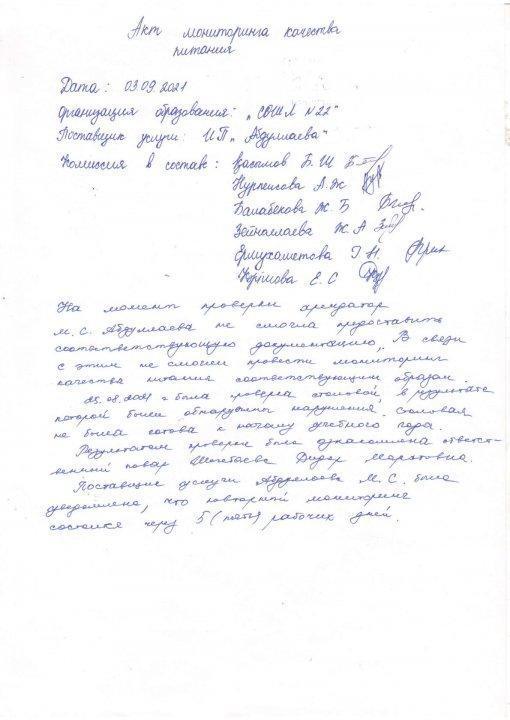 Акт мониторинга качества
питания
Дата: 03.09.2021
организация образования: "СОШЛ №22"
Поставщик услуги: ИП "Абдуллаева"
Комиссия в состав: Касымов Б.Ш
Нурпеисова А.Ж
Балабекова Ж.Б
Зейноллаева Ж.А
Ермухаметова Г.Н.
Крылова Е.С
На момент проверки арендатор
М.С. Абдуллаева не смогла предоставить
соответствующую документацию. В связи
с этим не смогли провести мониторинг
качества питания соответствующим образом.
25.08.2021 г была проверка столовой, в результате
которой были обнаружены нарушения. Столовая
не была готова к началу учебного года.
Результатом проверки была ознакомлена ответст-
венный повар Дидар Маратовна.
Поставщик услуги Абдуллаева М.С. была
уведомлена, что повторный мониторинг
через 5 (пять) рабочих дней.